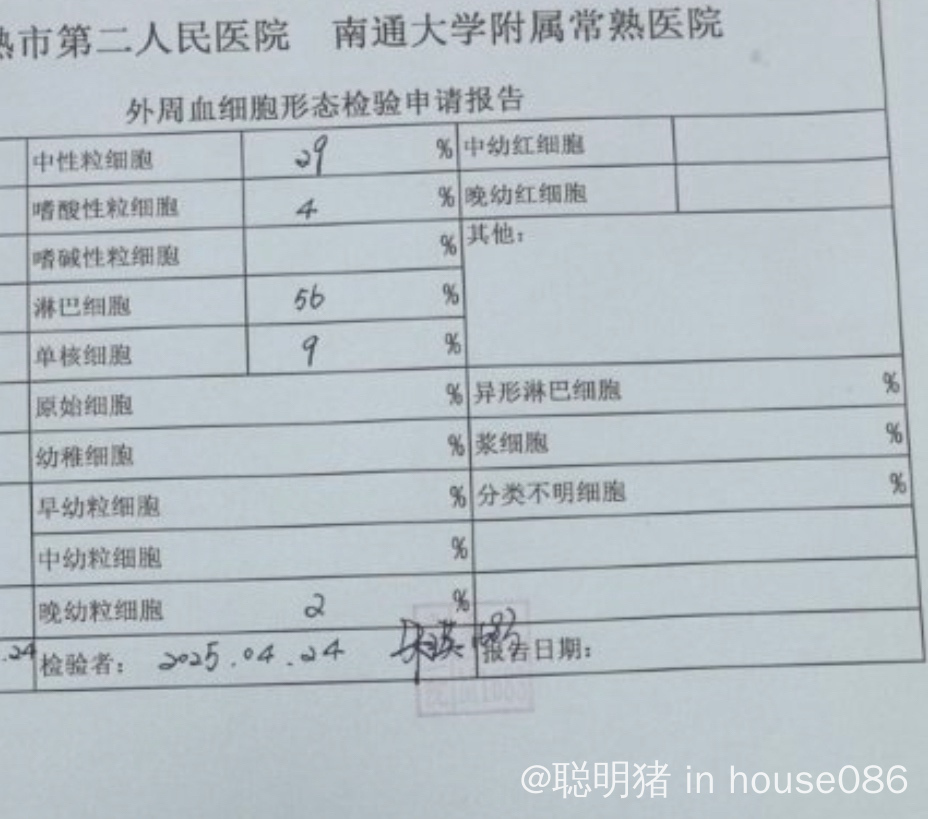 熟市第二人民医院 南通大学附属常熟医院
外周血细胞形态检验申请报告
中性粒细胞 29 % 中幼红细胞
嗜酸性粒细胞 4 % 晚幼红细胞
嗜碱性粒细胞 % 其他：
淋巴细胞 56 %
单核细胞 9 %
原始细胞 % 异形淋巴细胞 %
幼稚细胞 % 浆细胞 %
早幼粒细胞 % 分类不明细胞 %
中幼粒细胞 %
晚幼粒细胞 2 %
.24 检验者： 2025.04.24 报告日期：
@聪明猪 in house086